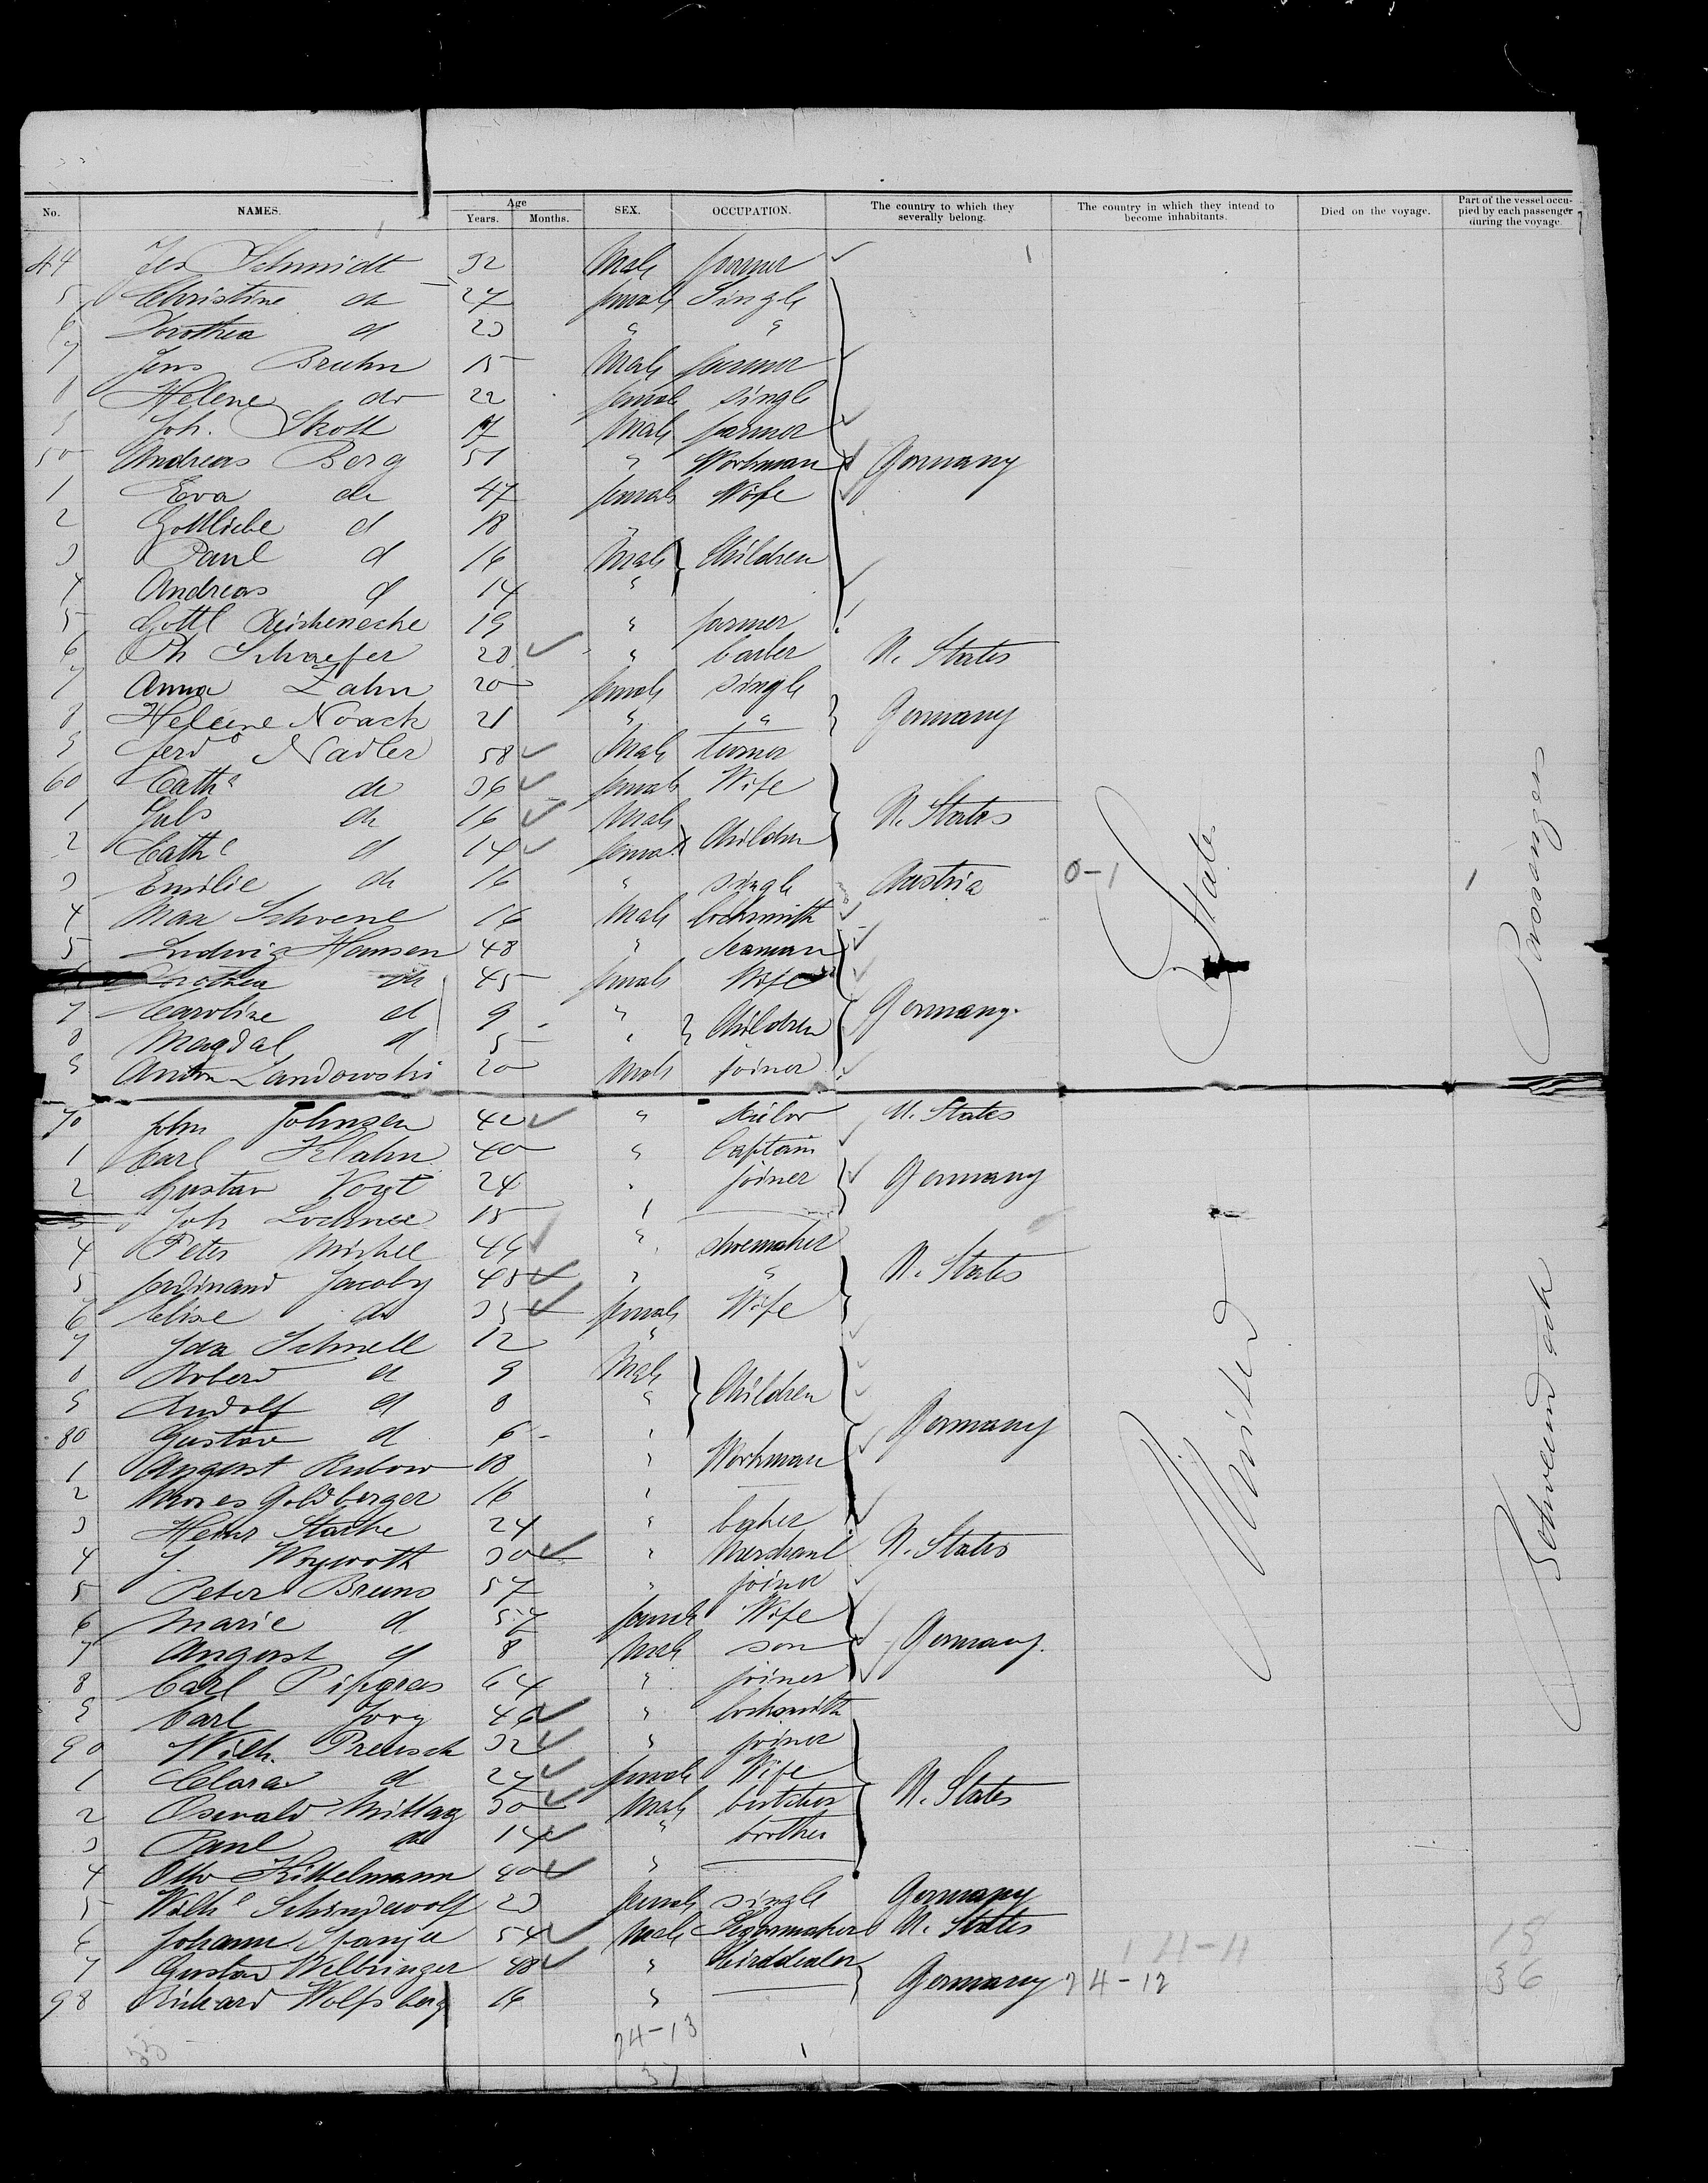 No. NAMES. Age Years. Months. SEX. OCCUPATION. The country to which they severally belong. The country in which they intend to become inhabitants. Died on the voyage. Part of the vessel occupied by each passenger during the voyage.
44 Jes Schmidt 32 Male farmer
5 Christine do 27 female Single
6 Dorothea d 23 " "
7 Jens Bruhn 15 Male farmer
8 Helene do 22 female single
9 Joh. Skott 17 Male farmer
50 Andreas Berg 51 " Workman Germany
1 Eva do 47 female Wife
2 Gottliebe d 18 "
3 Paul d 16 Male Children
4 Andreas d 14 "
5 Gottl Reichenecke 19 " farmer
6 Ph Schaefer 28 " barber U. States
7 Anna Zahn 20 female single
8 Heleine Noack 21 " " Germany
9 Ferd Nadler 58 Male turner
60 Cath do 36 female Wife
1 Juls do 16 Male U. States
2 Cathe d 14 female Children
3 Emilie do 16 " single Austria 0-1 1
4 Max Schoene 16 Male locksmith
5 Ludwig Hansen 48 " Seaman
Dorothea do 45 female Wife
7 Caroline d 9 " Children Germany.
8 Magdal d 5 "
9 Anton Landowski 20 Male joiner
70 John Johnsen 42 " U. States
1 Carl Klahn 40 " Captain
2 Gustav Vogt 24 " joiner Germany
Joh 15 "
4 Peter Michel 49 " shoemaker
5 Ferdinand Jacoby 48 " " U. States
6 Elise do 35 female Wife
7 Ida Schnell 12 "
8 Robert d 9 Male
9 Rudolf d 8 " Children
80 Gustav d 6 " Germany
1 August Rubow 18 " Workman
2 Moses Goldberger 16 "
3 Heinr Starke 24 " baker
4 J. 30 " Merchant U. States
5 Peter Bruns 57 " joiner
6 Marie d 57 female Wife
7 August d 8 Male son Germany.
8 Carl Pipgras 64 " joiner
9 Carl Jorg 46 " locksmith
90 Wilh. Preusch 32 " joiner
1 Clara d 27 female Wife
2 Oswald Mittag 30 Male butcher U. States
3 Paul do 14 " brother
4 Otto Kittelmann 40 "
5 Wilhe Schindewolf 23 female single Germany
6 Johann 54 Male Segarmaker U. States
7 Gustav Welbringer 48 " birddealer
98 Richard Wolfsberg 16 " Germany 24-12
United States
Passinger
11-11
18
36
24-13
37